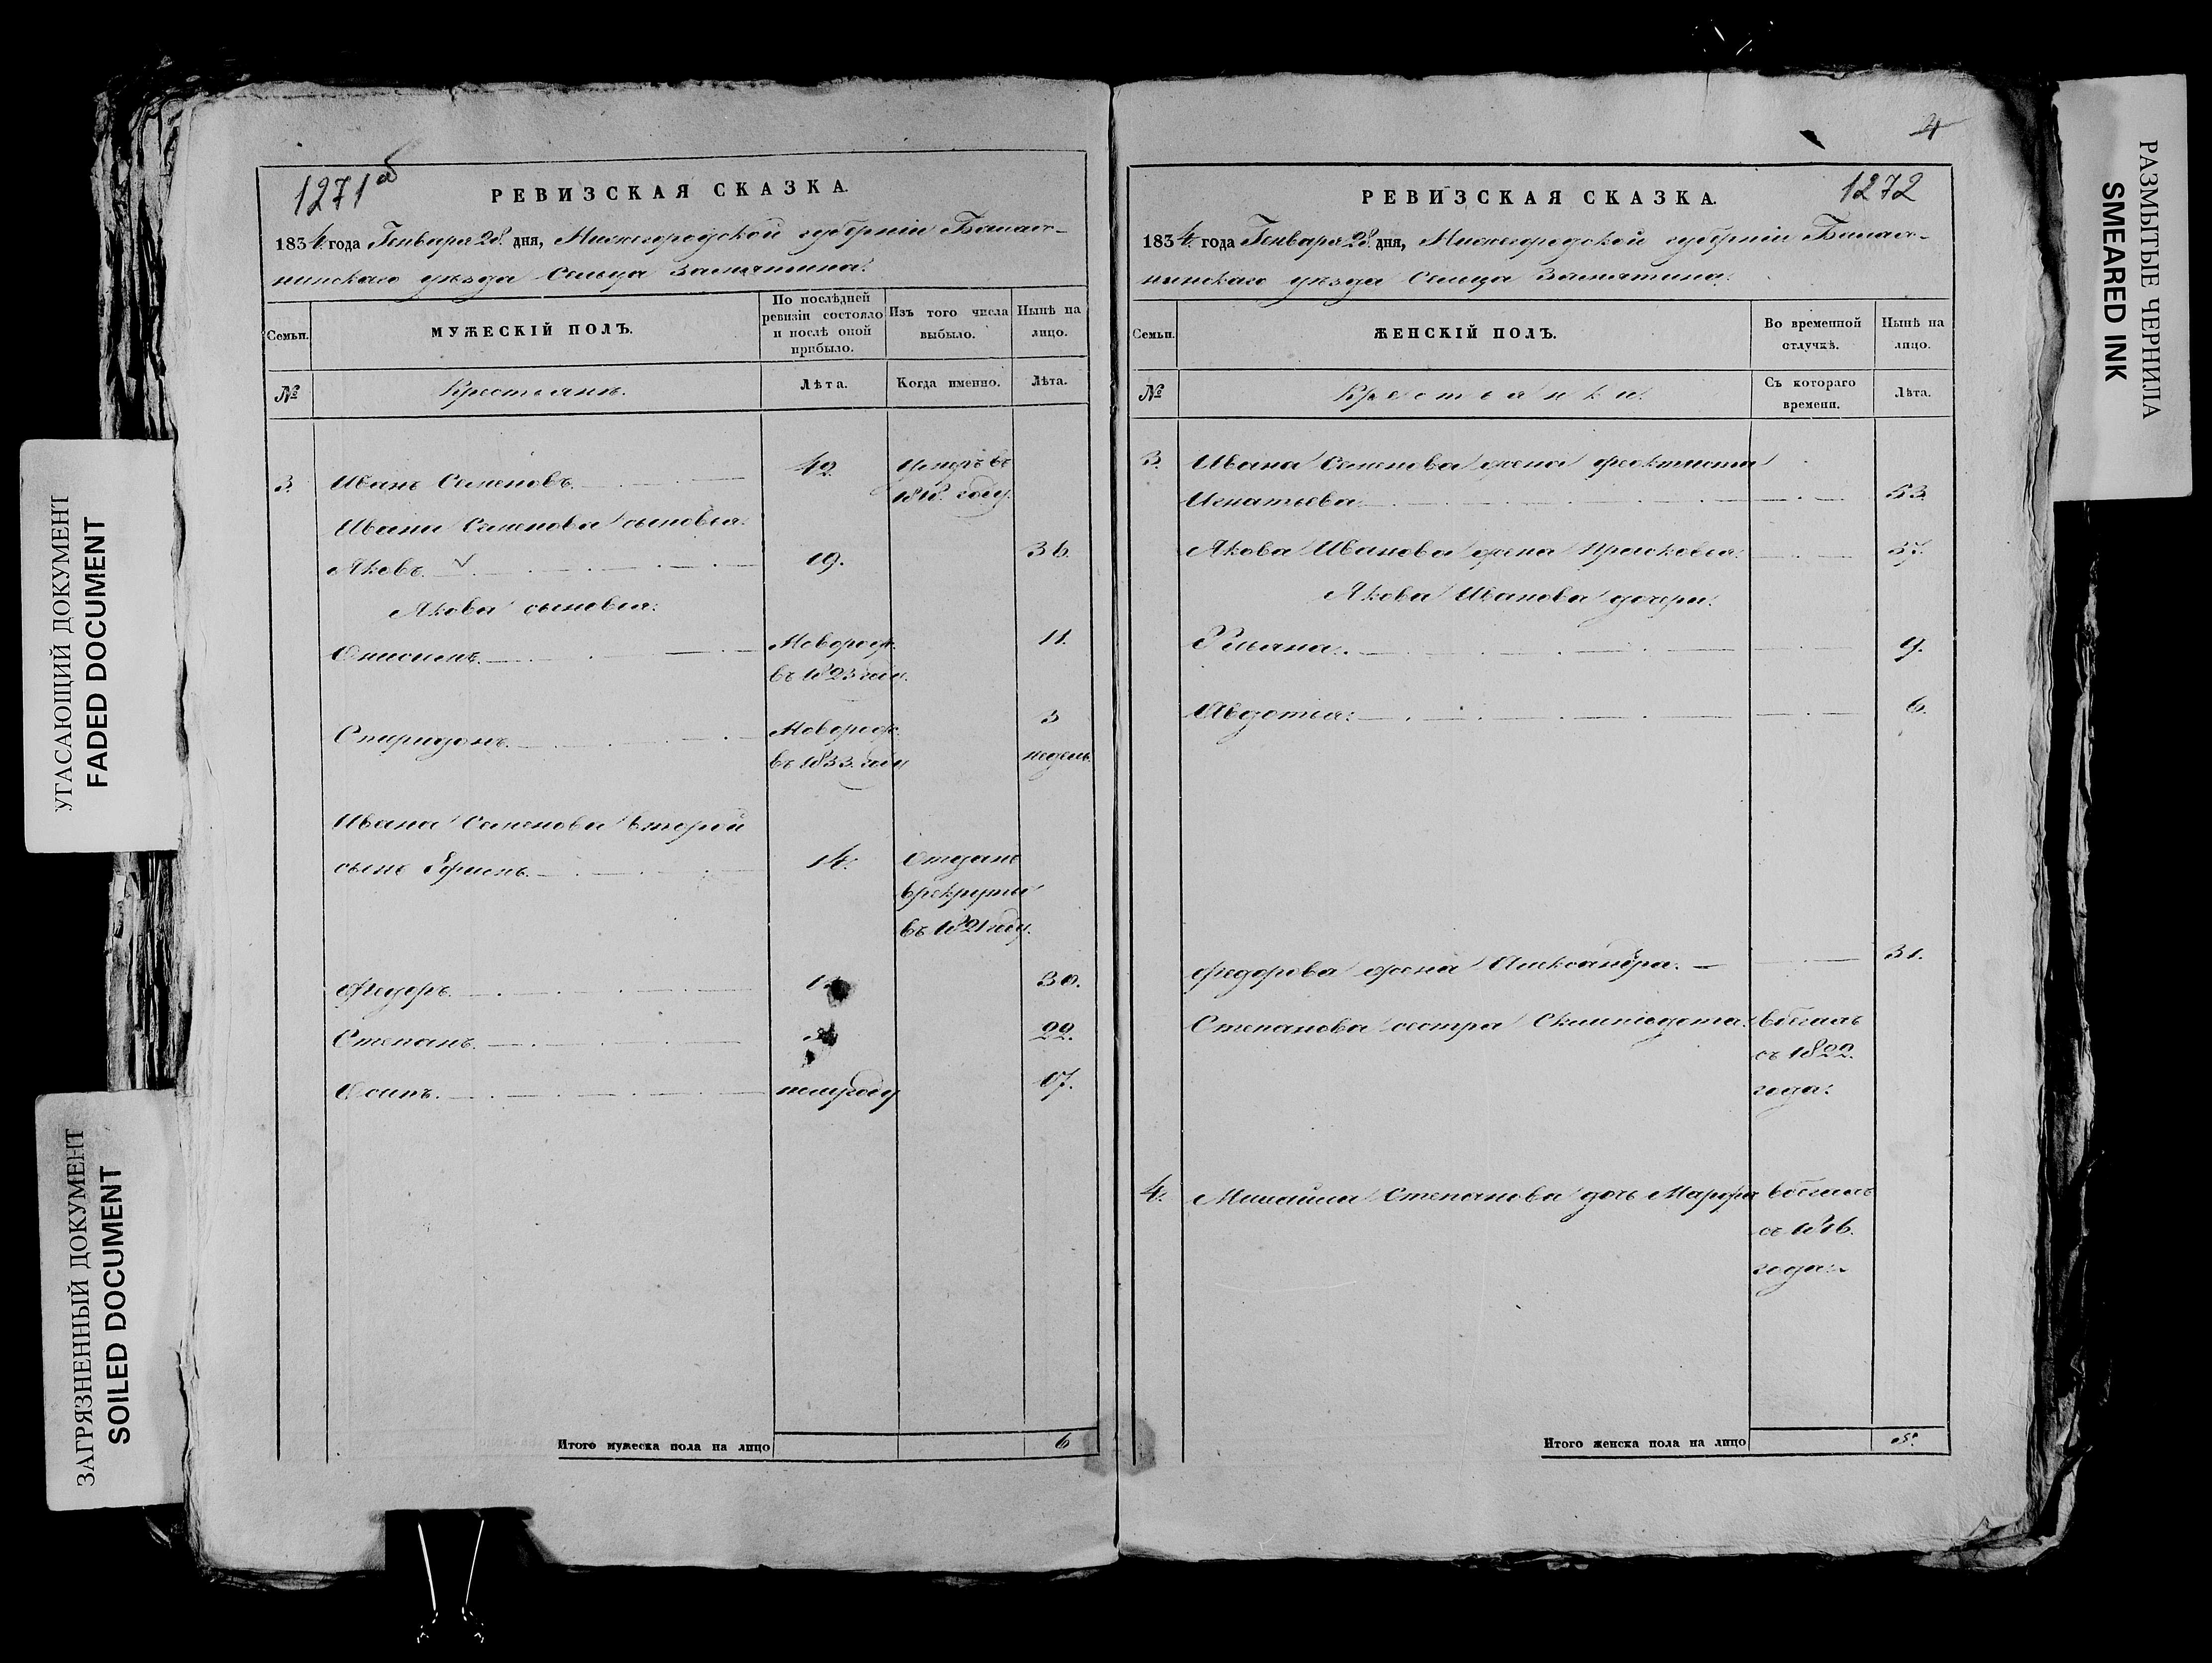 УГАСАЮЩИЙ ДОКУМЕНТ
FADED DOCUMENT
ЗАГРЯЗНЕННЫЙ ДОКУМЕНТ
SOILED DOCUMENT
1271б
РЕВИЗСКАЯ СКАЗКА.
1834. года Генваря 28. дня, Нижегородской губернии Балах-
нинскаго уезда Сельца Замятина:
Семьи.
МУЖЕСКІЙ ПОЛЪ.
По послѣдней ревизіи состояло и послѣ оной прибыло.
Изъ того числа выбыло.
Нынѣ на лицо.
№
Крестьянъ.
Лѣта.
Когда именно.
Лѣта.
3. Иванъ Семеновъ. 42. Померъ въ
1818. году.
Ивана Семенова сыновья:
Яковъ. 19. 36.
Якова сыновья:
Онисимъ. Новорож. 11.
въ 1823 году.
Спиридонъ. Новорож. 3
въ 1833. году недель.
Ивана Семенова второй
сынъ 14. Отданъ
врекруты
въ 1821 году.
Федоръ. 30.
Степанъ. 22.
Осипъ. полугоду 17.
Итого мужеска пола на лицо 6
4
РЕВИЗСКАЯ СКАЗКА.
1272
1834. года Генваря 28. дня, Нижегородской губернии Балах-
нинскаго уезда Сельца Замятина:
Семьи.
ЖЕНСКІЙ ПОЛЪ.
Во временной отлучкѣ.
Нынѣ на лицо.
№
Крестьянки:
Съ котораго времени.
Лѣта.
3. Ивана Семенова жена Феоктиста
Игнатьева 53.
Якова Иванова жена Прасковья: 37.
Якова Иванова дочери:
Ульяна: 9.
Авдотья: 6.
Федорова жена Александра. 31.
Степанова сестра вбегахъ
съ 1822.
года:
4. Михайла Степанова дочь Марфа вбегахъ
съ 1816.
года:
Итого женска пола на лицо 5.
РАЗМЫТЫЕ ЧЕРНИЛА
SMEARED INK